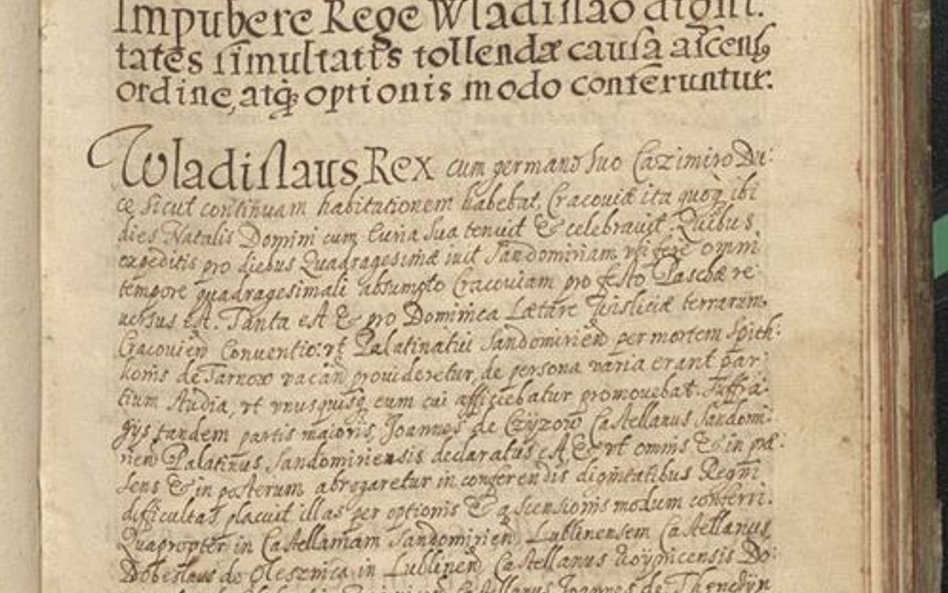 Impubere Rege Wladislao digni:
tates simultatis tollendæ causa ascens⁹
ordine, atq; optionis modo conferuntur.
Wladislaus Rex cum germano suo Cazimiro Du:
ce sicut continuam habitationem habebat Cracoviæ ita quoq; ibi
dies Natalis Domini cum Curia sua tenuit & celebravit. Quibus
expeditis pro diebus Quadragesimæ iuit Sandomiriam, vbi fere omni
tempore quadragesimali absumpto Cracoviam pro festo Paschæ re
uersus est. Tanta est & pro Dominica Lætare Visliciæ terrarum
Cracovien Conventio: vt Palatinatui Sandomirien per mortem Spith:
konis de Tarnow vacan provideretur, de persona varia erant par:
tium studia, vt vnusquisq; eum cui afficiebatur promovebat. Suffra:
gijs tandem partis maioris, Joannes de Czyzow Castellanus Sandomi:
rien Palatinus Sandomiriensis declaratus est, & vt omnis & in præ:
sens & in posterum abrogaretur in conferendis dignitatibus Regni
difficultas placuit illas per optionis & ascensionis modum conferri.
Quapropter in Castellaniam Sandomirien Lublinensem Castellanus
Dobeslaus de Olesznica, in Lublinen Castellanus Voynicensis Do:
Castellanus Joannes de Thenczyn